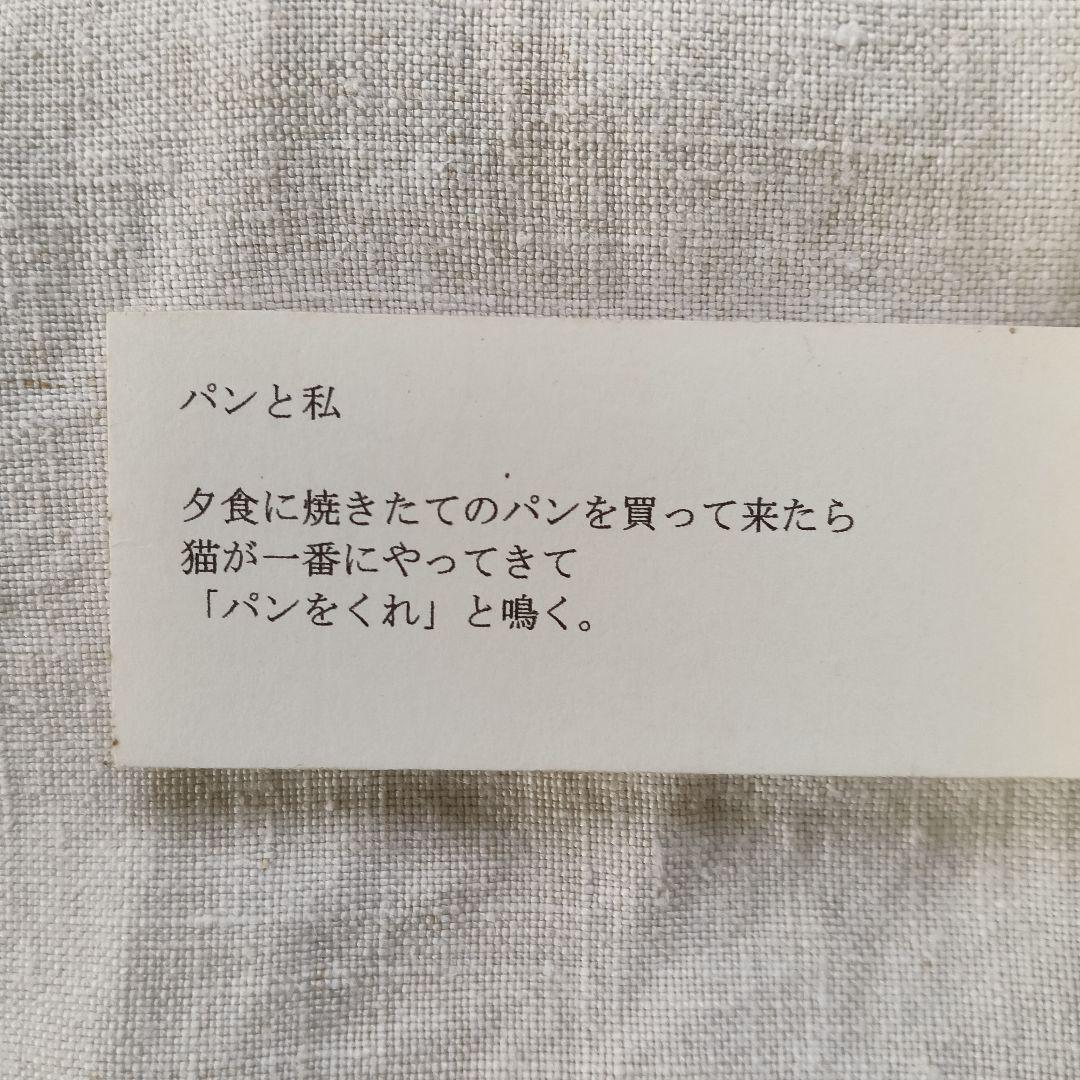 パンと私
夕食に焼きたてのパンを買って来たら
猫が一番にやってきて
「パンをくれ」と鳴く。